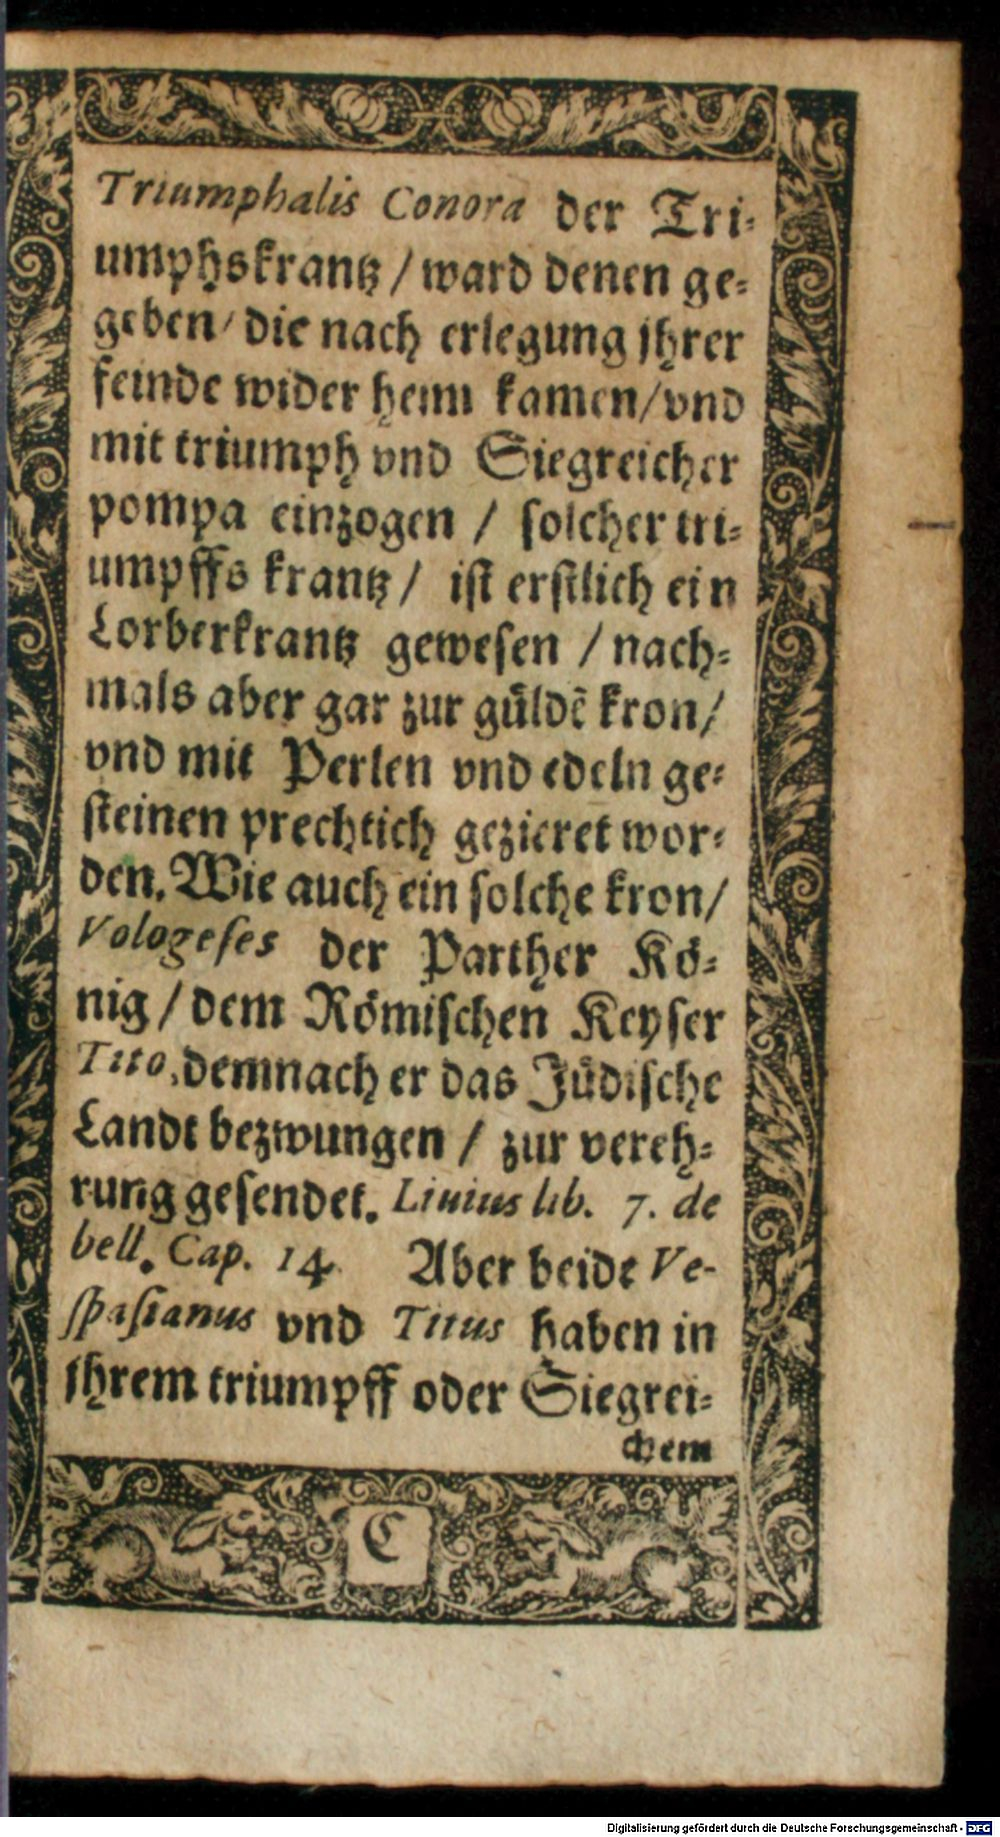 Triumphalis Conora der Tri-
umphskrantz / ward denen ge-
geben / die nach erlegung jhrer
feinde wider heim kamen / vnd
mit triumph vnd Siegreicher
pompa einzogen / solcher tri-
umpffs krantz / ist erstlich ein
Lorberkrantz gewesen / nach-
mals aber gar zur güldẽ kron /
vnd mit Perlen vnd edeln ge-
steinen prechtich gezieret wor-
den. Wie auch ein solche kron /
Vologeses der Parther Kö-
nig / dem Römischen Keyser
Tito, demnach er das Jüdische
Landt bezwungen / zur vereh-
rung gesendet. Liuius lib. 7. de
bell. Cap. 14. Aber beide Ve-
spasianus vnd Titus haben in
jhrem triumpff oder Siegrei-
chem
C
Digitalisierung gefördert durch die Deutsche Forschungsgemeinschaft - DFG